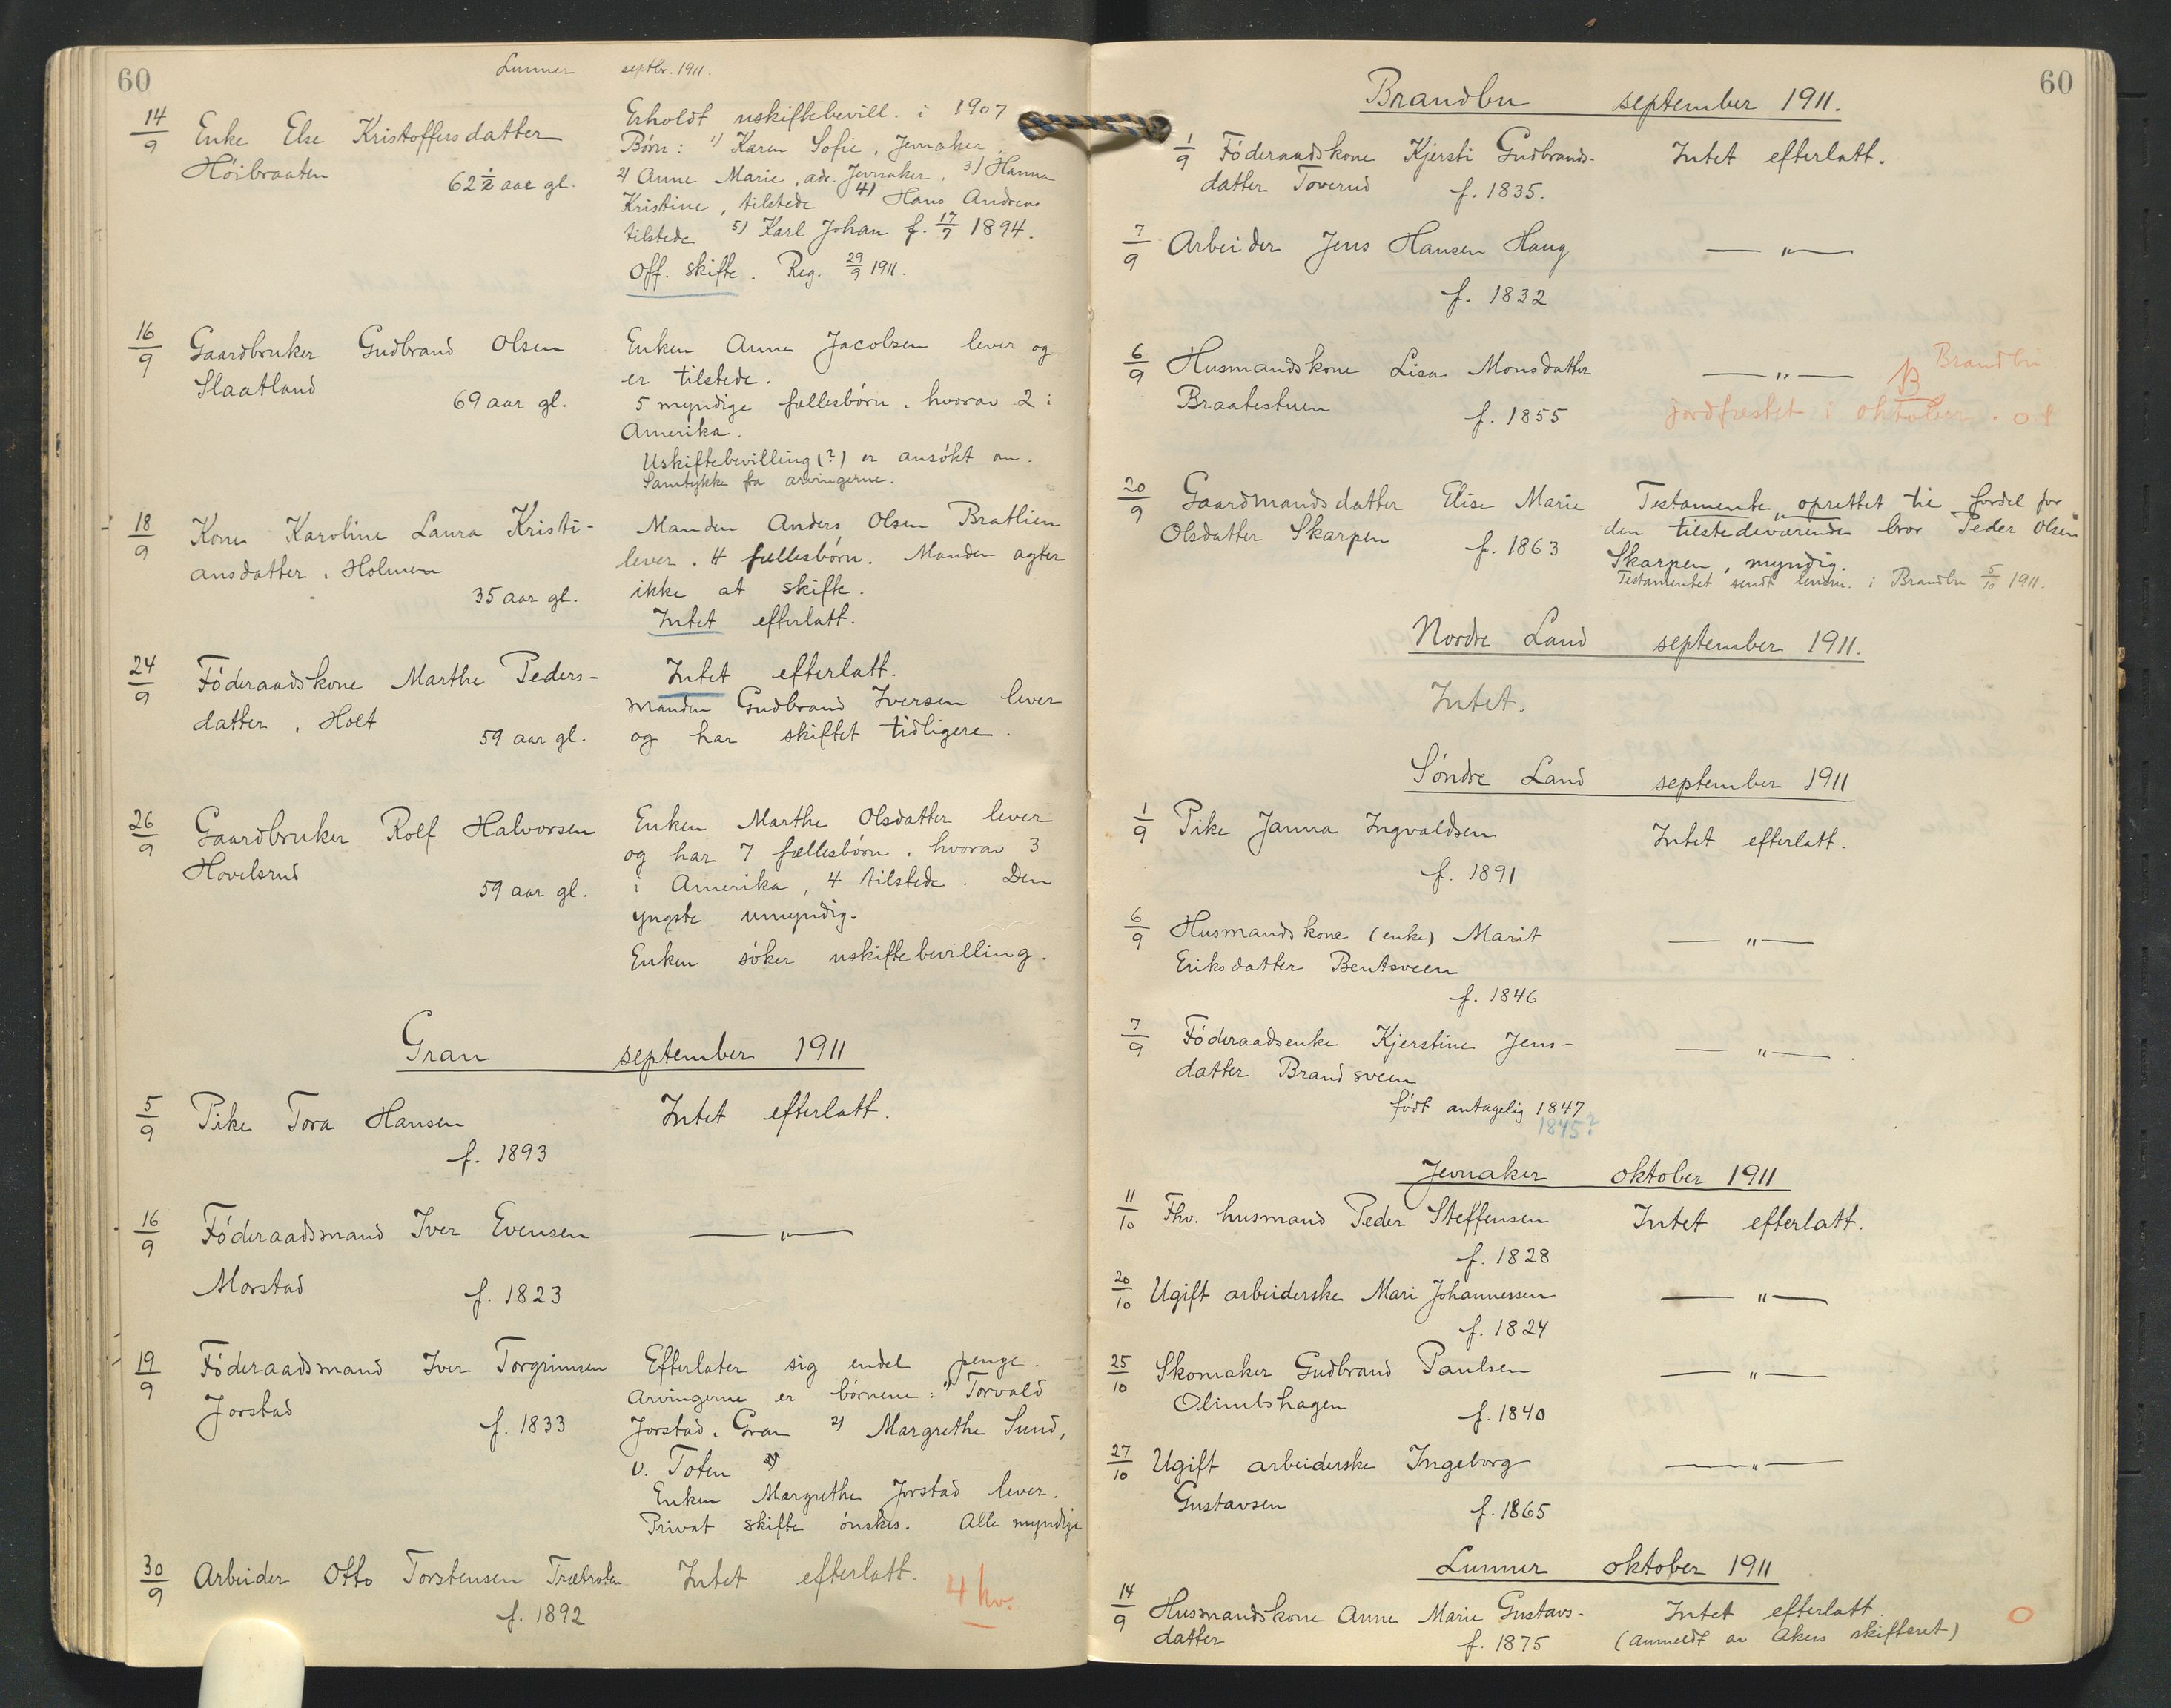 60
Lunner septbr. 1911.
14/9 Enke Else Kristoffersdatter
Høibraaten
62 1/2 aar gl.
Erholdt uskiftebevill. i 1907
Børn: 1) Karen Sofie, Jevnaker
2) Anne Marie, adr. Jevnaker. 3) Hanna
Kristine, tilstede 4) Hans Andreas
tilstede 5) Karl Johan f. 17/7 1894.
Off. skifte. Reg. 29/9 1911.
16/9 Gaardbruker Gudbrand Olsen
Slaatland
69 aar gl.
Enken Anne Jacobsen lever og
er tilstede.
5 myndige fællesbørn, hvorav 2 i
Amerika.
Uskiftebevilling (?) er ansøkt om.
Samtykke fra arvingerne.
18/9 Kone Karoline Laura Kristi-
ansdatter, Holmen
35 aar gl.
Manden Anders Olsen Bratlien
lever. 4 fællesbørn. Manden agter
ikke at skifte.
Intet efterlatt.
24/9 Føderaadskone Marthe Peders-
datter, Holt
59 aar gl.
Intet efterlatt.
Manden Gudbrand Iversen lever
og har skiftet tidligere.
26/9 Gaardbruker Rolf Halvorsen
Hovelsrud
59 aar gl.
Enken Marthe Olsdatter lever
og har 7 fællesbørn, hvorav 3
i Amerika, 4 tilstede. Den
yngste umyndig.
Enken søker uskiftebevilling.
Gran september 1911
5/9 Pike Tora Hansen
f. 1893
Intet efterlatt.
16/9 Føderaadsmand Iver Evensen
Morstad
f. 1823
— " —
19/9 Føderaadsmand Iver Torgrimsen
Jorstad
f. 1833
Efterlater sig endel penge.
Arvingerne er børnene: 1) Torvald
Jorstad, Gran 2) Margrethe Sund,
V. Toten
Enken Margrethe Jorstad lever.
Privat skifte ønskes. Alle myndige
30/9 Arbeider Otto Torstensen
f. 1892
Intet efterlatt.
4 hv.
60
Brandbu september 1911.
1/9 Føderaadskone Kjersti Gudbrands-
datter Toverud f. 1835.
Intet efterlatt.
7/9 Arbeider Jens Hansen Haug
f. 1832
— " —
6/9 Husmandskone Lisa Monsdatter
Braatestuen f. 1855
— " —
B Brandbu
jordfæstet i oktober.
20/9 Gaardmandsdatter Elise Marie
Olsdatter Skarpen f. 1863
Testamente oprettet til fordel for
den tilstedeværende bror Peder Olsen
Skarpen, myndig.
Testamentet sendt lensm. i Brandbu 5/10 1911.
Nordre Land september 1911.
Intet.
Søndre Land september 1911
1/9 Pike Janna Ingvaldsen
f. 1891
Intet efterlatt.
6/9 Husmandskone (enke) Marit
Eriksdatter Bentsveen
f. 1846
— " —
7/9 Føderaadsenke Kjerstine Jens-
datter Brandsveen
født antagelig 1847
1845?
— " —.
Jevnaker oktober 1911
11/10 Fhv. husmand Peder Steffensen
f. 1828
Intet efterlatt.
20/10 Ugift arbeiderske Mari Johannessen
f. 1824
— " —
25/10 Skomaker Gudbrand Paulsen
Olimbshagen f. 1840
— " —
27/10 Ugift arbeiderske Ingeborg
Gustavsen f. 1865
— " —
Lunner oktober 1911
14/9 Husmandskone Anne Marie Gustavs-
datter f. 1875
Intet efterlatt.
(anmeldt av Akers skifteret)